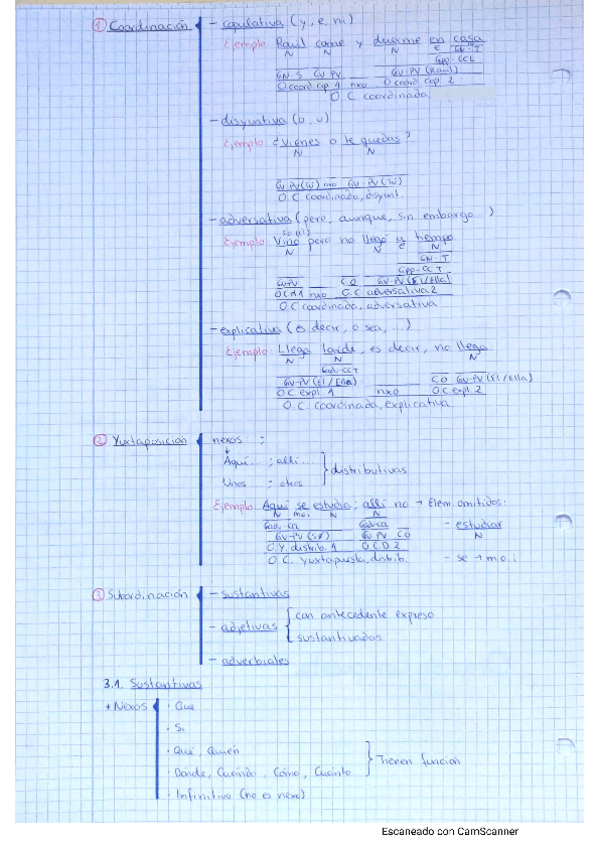 ① Coordinación - copulativa (y, e, ni)
Ejemplo: Raúl come y duerme en casa
N N N E GN-T
GPP-CCL
GN-S GV-PV GV-PV (Raúl)
O coord cop. 1 nxo O coord cop. 2
O. C. coordinada,
- disyuntiva (o, u)
Ejemplo: ¿Vienes o te quedas?
N N
GV-PV (tú) nxo GV-PV (tú)
O. C. coordinada, disyunt.
- adversativa (pero, aunque, sin embargo...)
Ejemplo: Vino pero no llegó a tiempo.
N N E N
GN-T
GPP-CCT
GV-PV CO GV-PV (Él/Ella)
OCA1 nxo O.C adversativa 2
O. C coordinada, adversativa
- explicativa (es decir, o sea, ...)
Ejemplo: Llega tarde, es decir, no llega
N N N
GAdv-CCT
GV-PV (El/Ella) CO GV-PV (El/Ella)
O C. expl. 1 nxo O C. expl. 2
O. C. coordinada, explicativa
② Yuxtaposición nexos :
Aquí... ; allí...
Unos... ; otros
distributivas
Ejemplo: Aquí se estudia; allí no → Elem. omitidos:
N m.o. N N
- estudiar
GV-PV (SØ) GV-PV CO N
O. Y. distrib. 1 O C D 2
O. C. Yuxtapuesta, distrib. - se → m.o. i
③ Subordinación - sustantivas
- adjetivas
con antecedente expreso
sustantivadas
- adverbiales
3.1. Sustantivas
+ Nexos · Que
· Si
· Qué, Quién
· Dónde, Cuándo, Cómo, Cuánto
Tienen función
· Infinitivo (no es nexo)
Escaneado con CamScanner